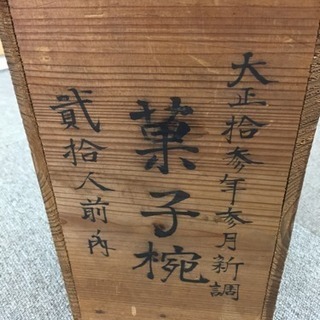 大正拾参年参月新調
菓子椀
貳拾人前内